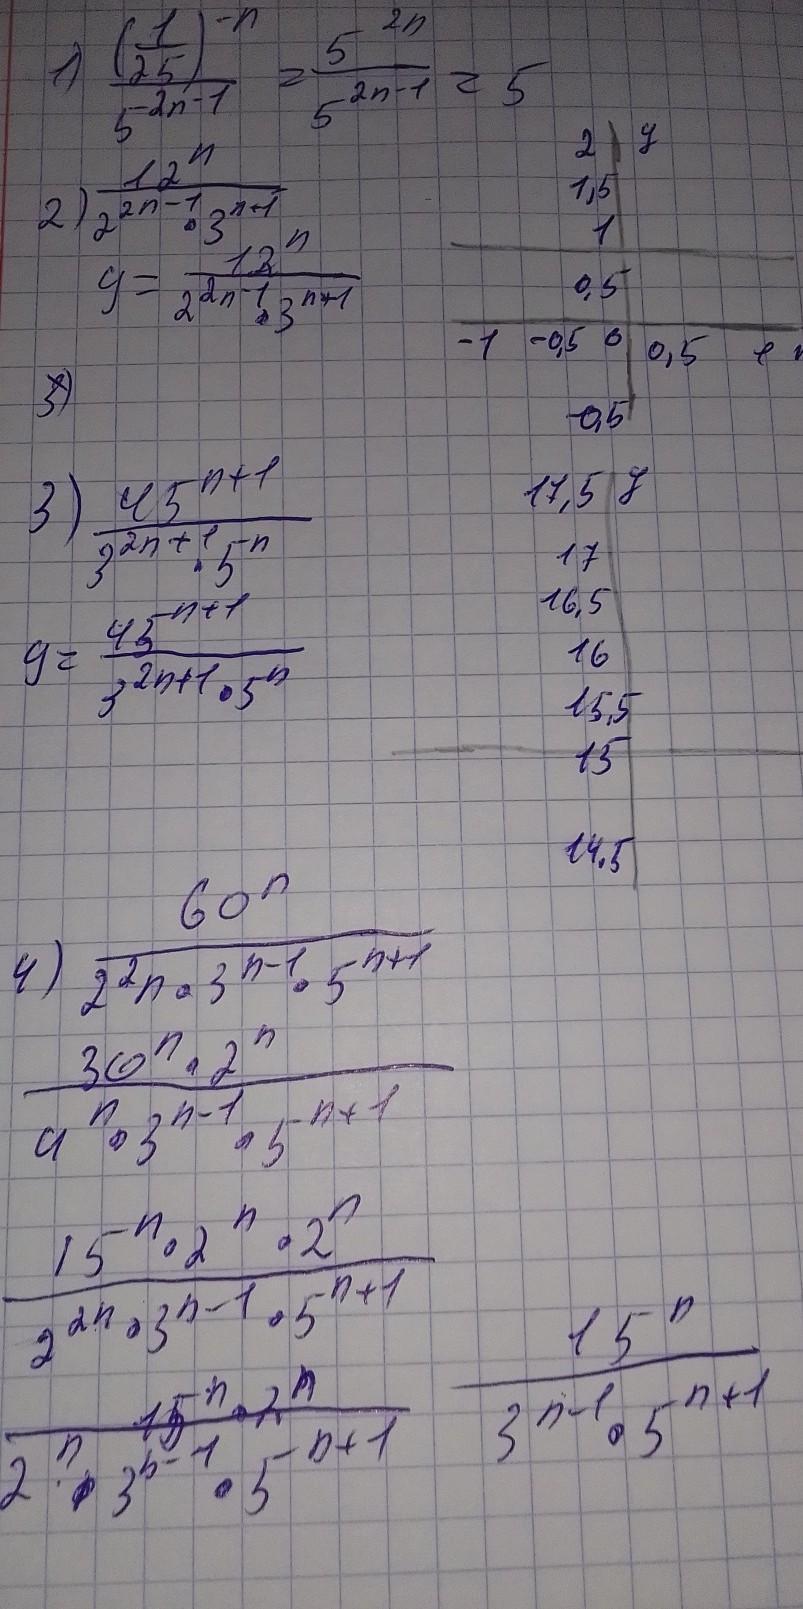 1) (1/25)^-n / 5^2n-1 = 5^2n / 5^2n-1 = 5
2) 12^n / 2^2n-1 · 3^n+1
y = 12^n / 2^2n-1 · 3^n+1
2 y
1,5
1
0,5
-1 -0,5 0 0,5 1
-0,5
3)
3) 45^n+1 / 3^2n+1 · 5^n
y = 45^n+1 / 3^2n+1 · 5^n
17,5 y
17
16,5
16
15,5
15
14,5
4) 60^n / 2^2n · 3^n-1 · 5^n+1
30^n · 2^n / 4^n · 3^n-1 · 5^n+1
15^n · 2^n · 2^n / 2^2n · 3^n-1 · 5^n+1
15^n · 2^n / 2^n · 3^n-1 · 5^n+1
15^n / 3^n-1 · 5^n+1